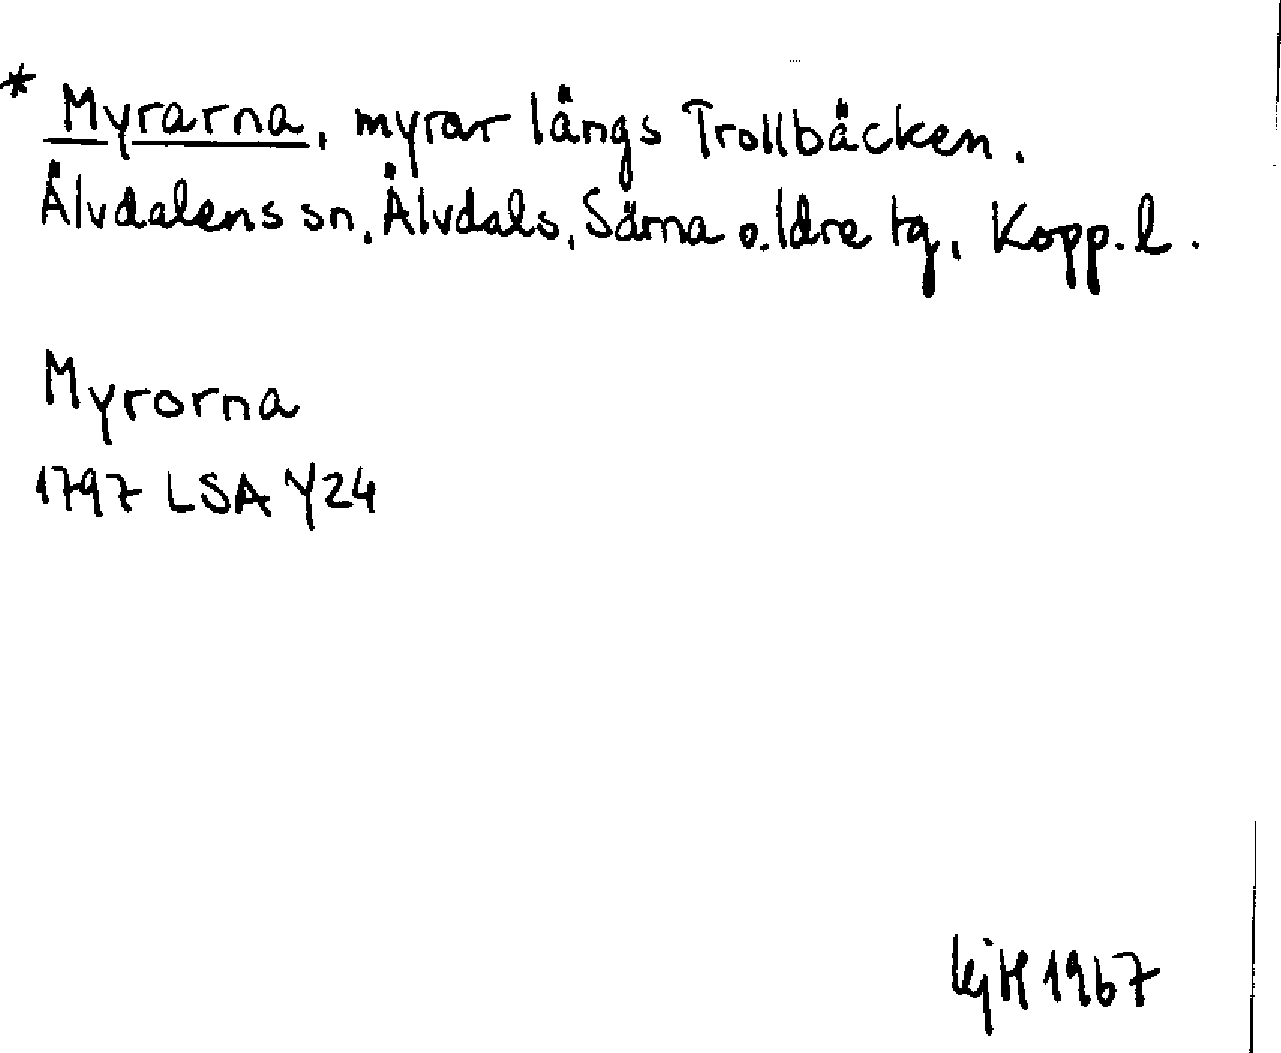 * Myrarna, myrar längs Trollbäcken.
Älvdalens sn, Älvdals, Särna o. Idre tg, Kopp. l.
Myrorna
1797 LSA Y24
kjH 1967